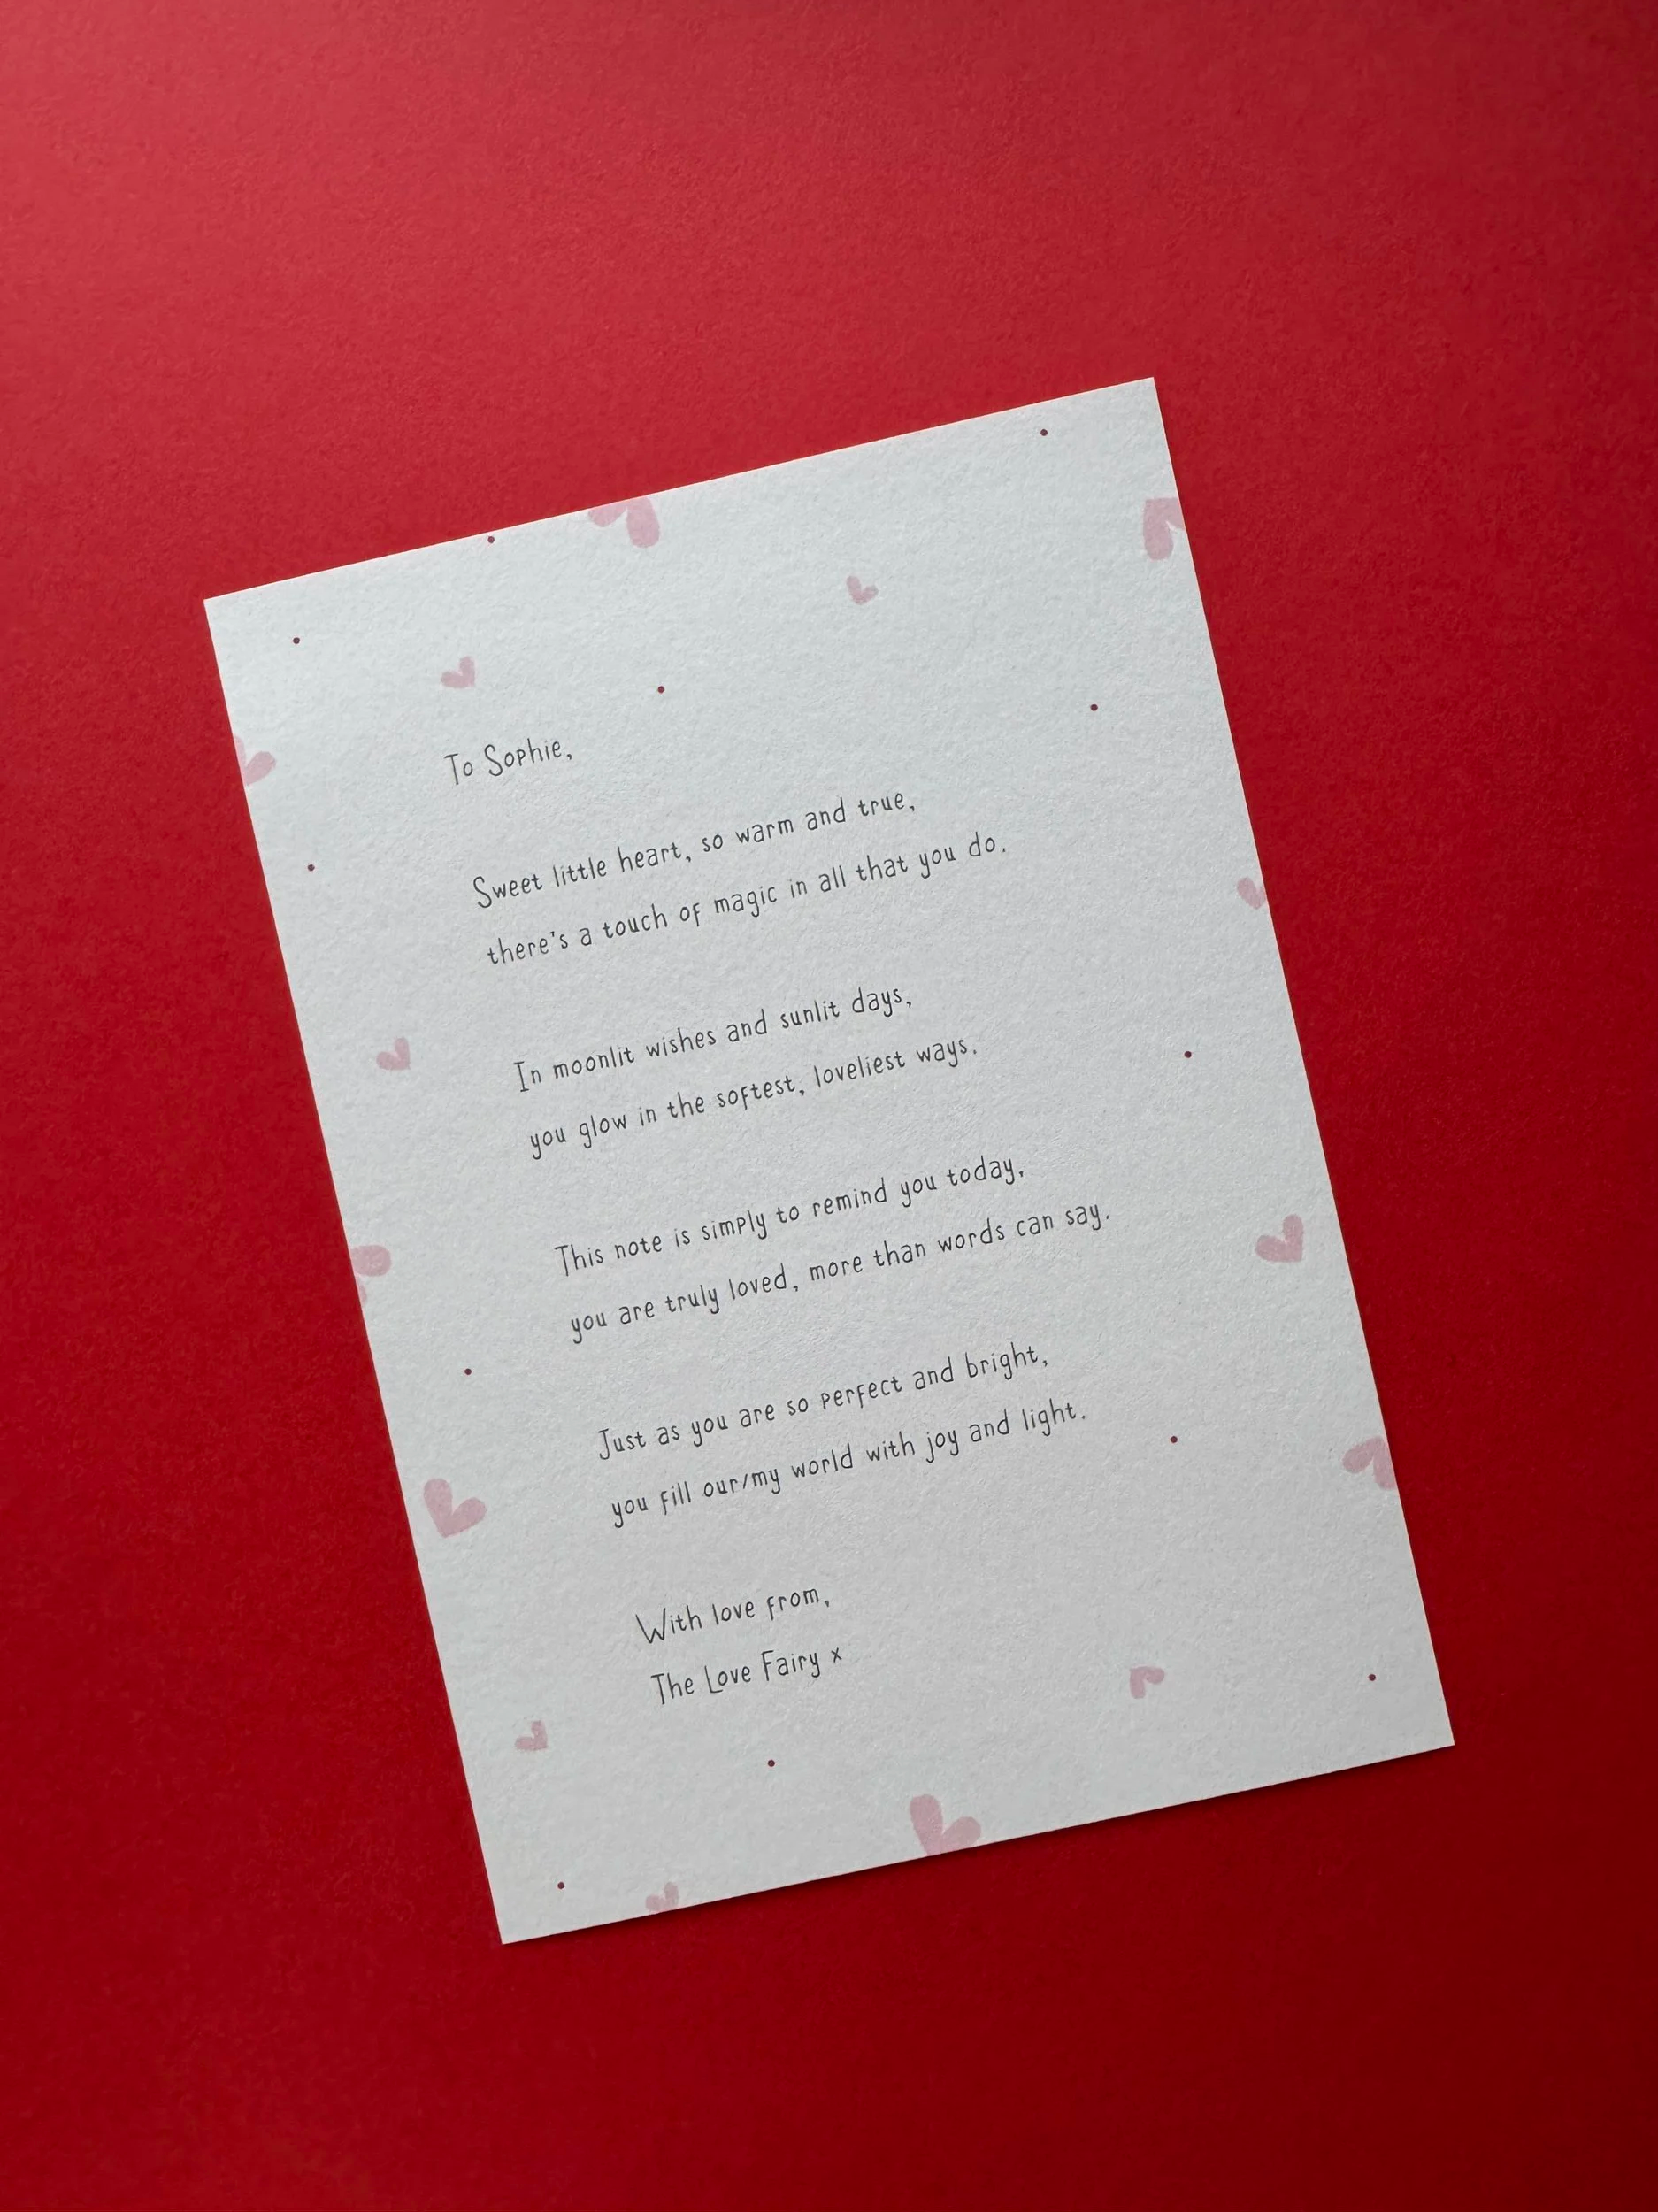 To Sophie,
Sweet little heart, so warm and true,
there's a touch of magic in all that you do.
In moonlit wishes and sunlit days,
you glow in the softest, loveliest ways.
This note is simply to remind you today,
you are truly loved, more than words can say.
Just as you are so perfect and bright,
you fill our/my world with joy and light.
With love from,
The Love Fairy x